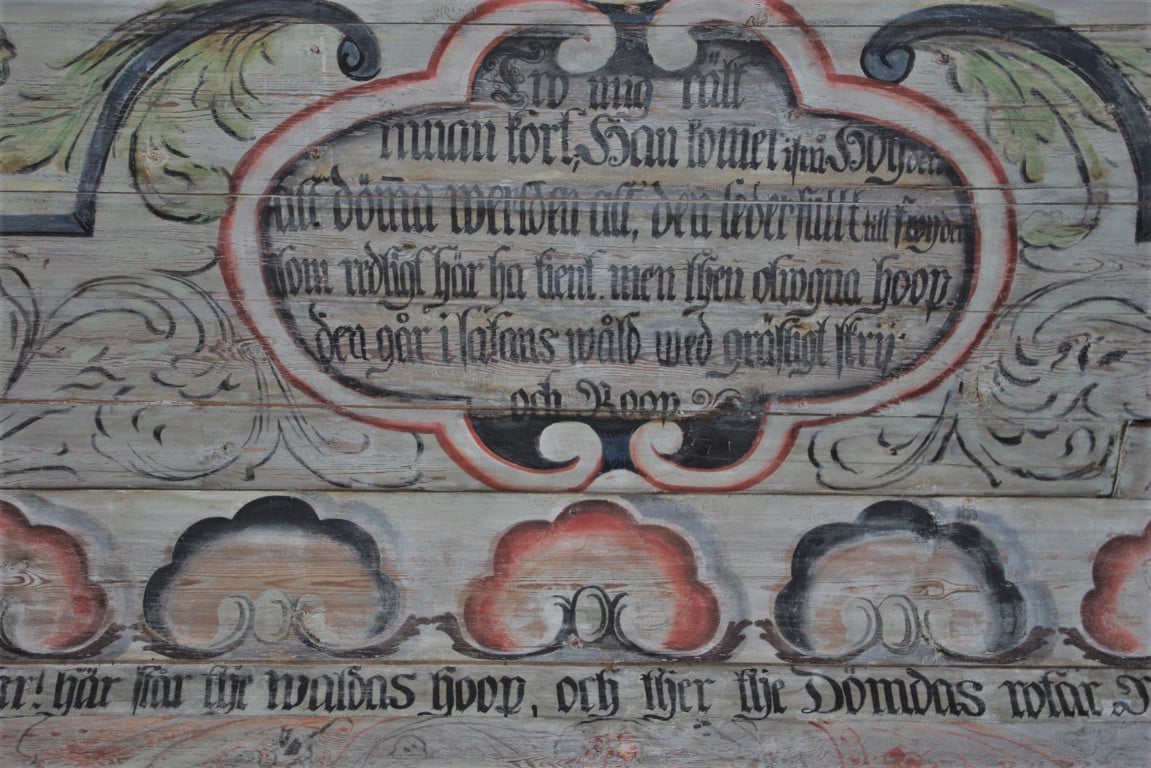 mig
innan kort, Han komer ifrån Höyden
att döma werlden all, den leder fullt till fröyden
som redligt här ha tient. men then hoop.
den går i satans wåld med gräsligt skry
och Roop
här står the waldas hoop, och ther the Dömdas rotar